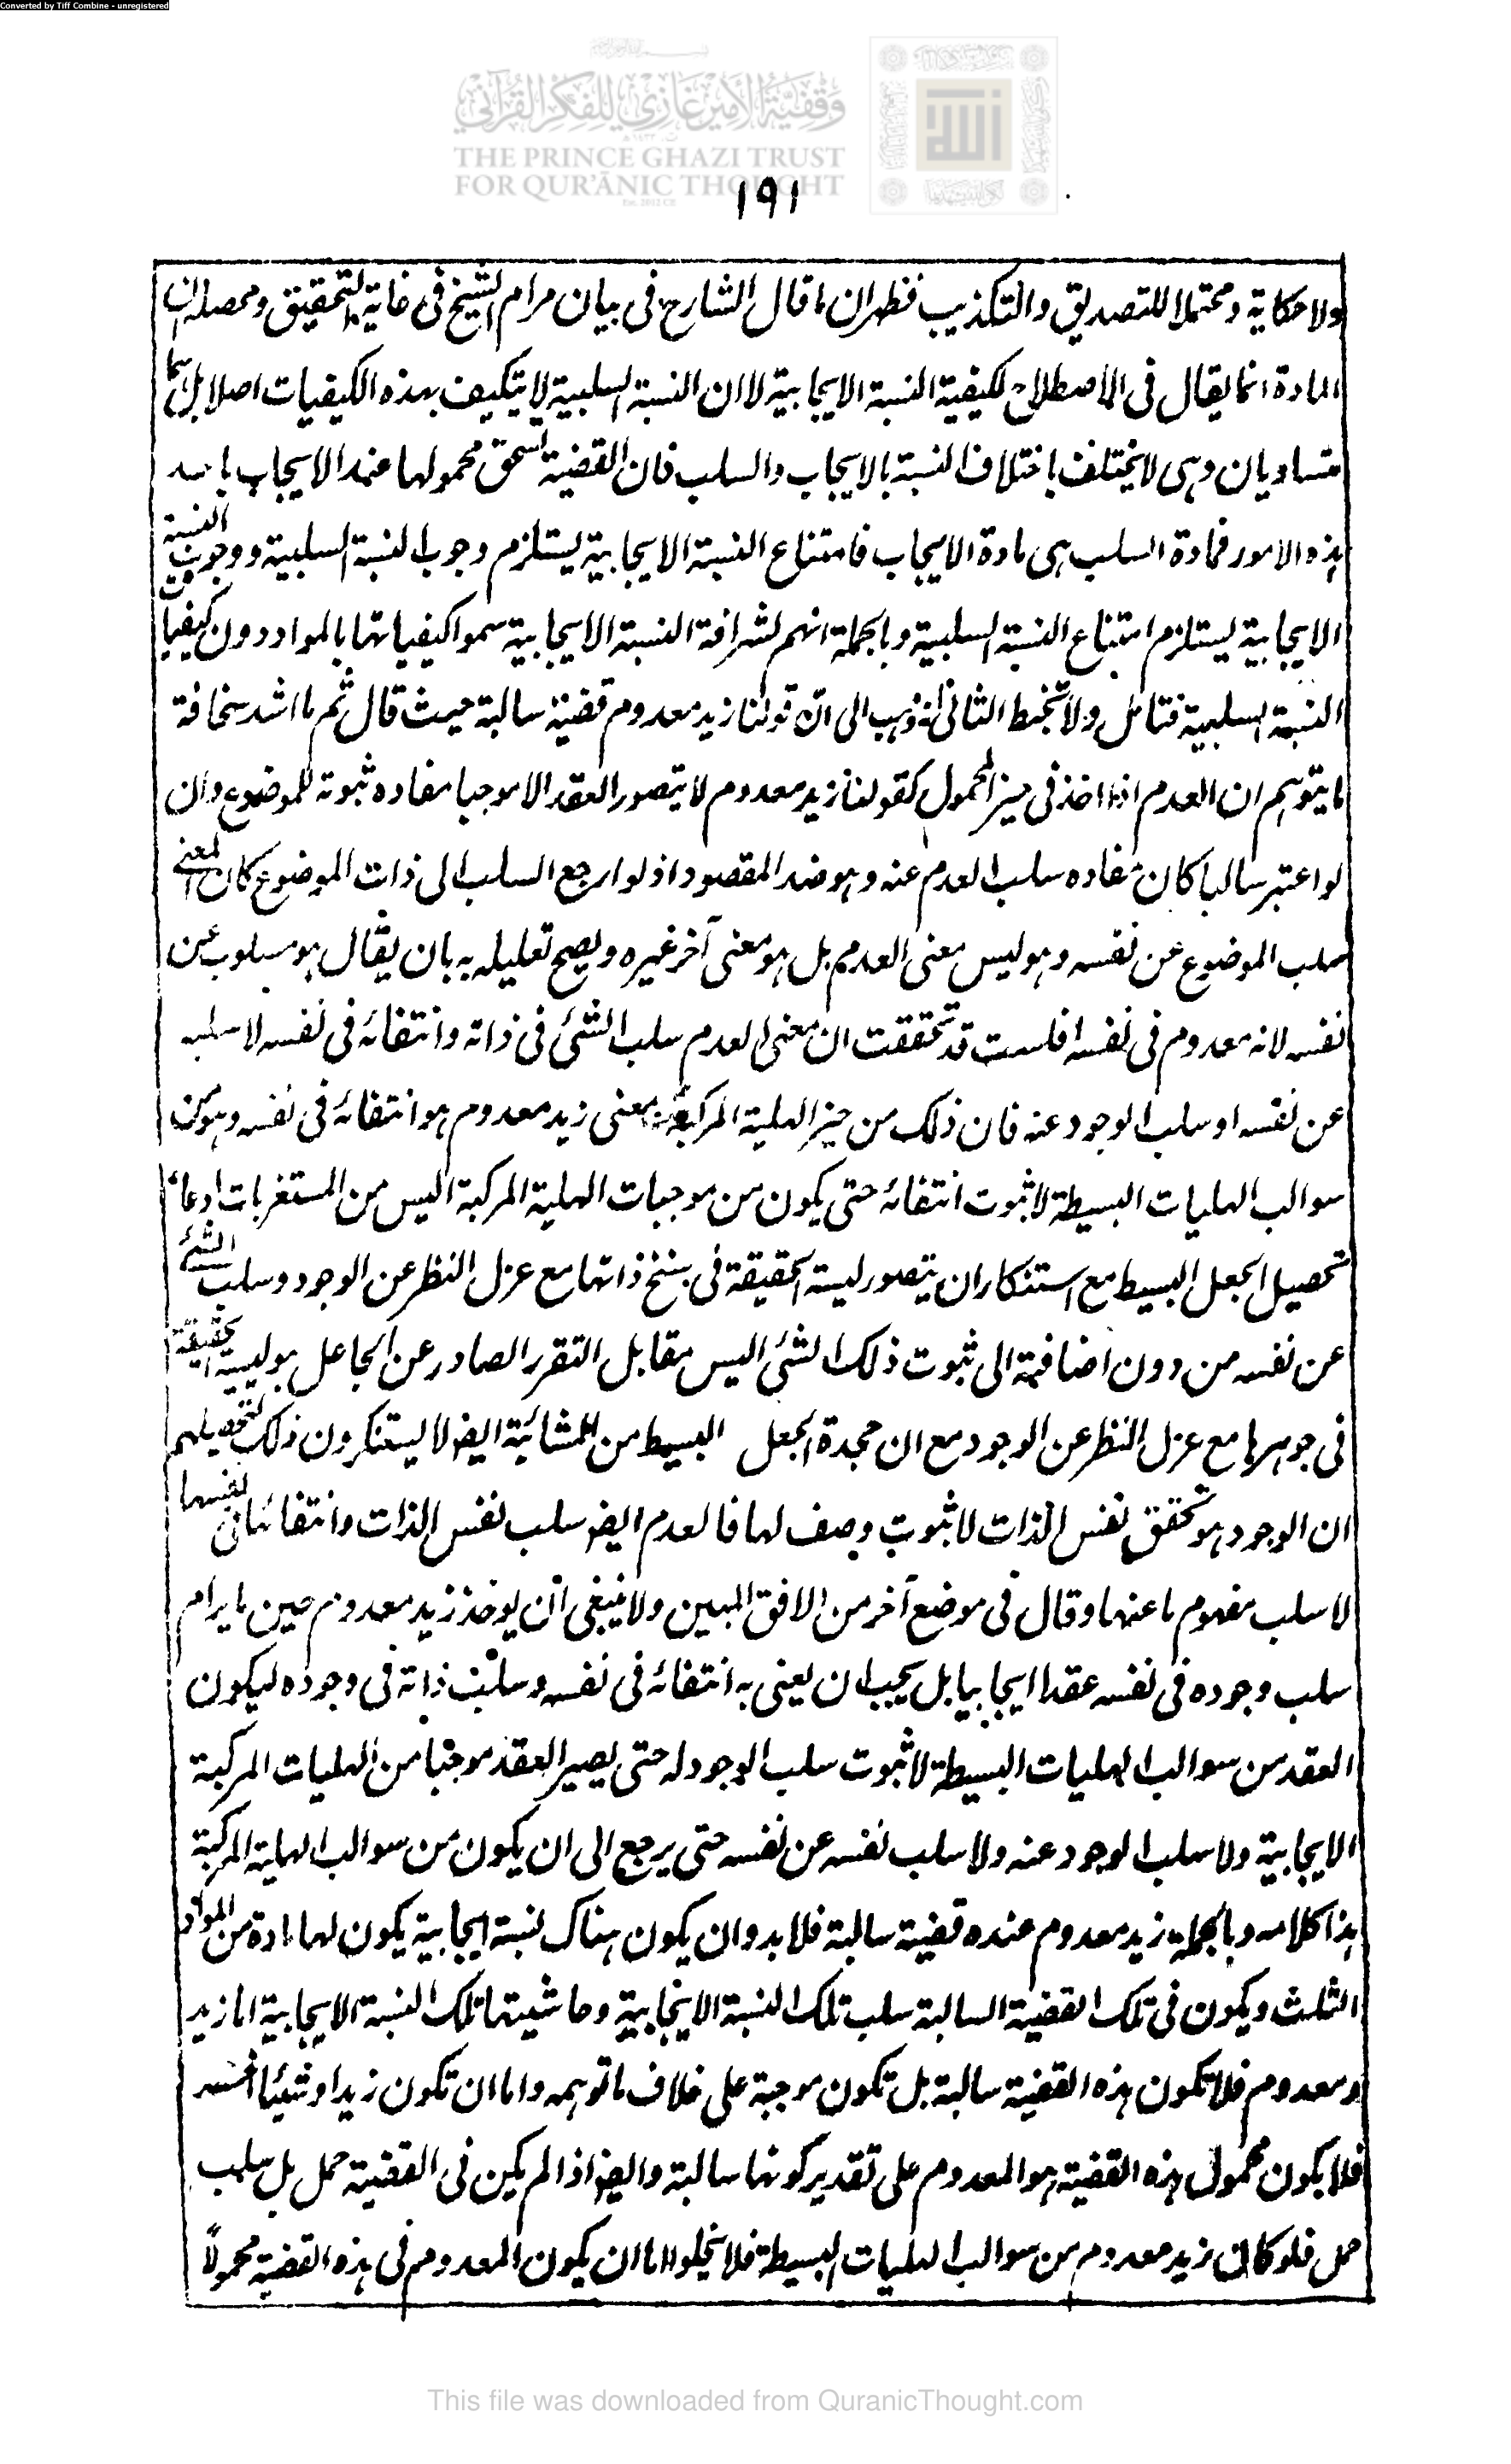 Converted by Tiff Combine - unregistered
وقفية الأمير غازي للفكر القرآني
THE PRINCE GHAZI TRUST
FOR QUR'ĀNIC THOUGHT
Est. 2012 CE
١٩١
ولا حكاية ومحتملا للتصديق والتكذيب فظهر ان ما قال الشارح فى بيان مرام الشيخ فى غاية التحقيق ومحصله ان
المادة انما يقال فى الاصطلاح لكيفية النسبة الايجابية لا ان النسبة السلبية لا يتكيف بهذه الكيفيات اصلا بل هما
متساويان وهى لا يختلف باختلاف النسبة بالايجاب والسلب فان القضية تستحق محمولها عند الايجاب باحد
هذه الامور فمادة السلب هى مادة الايجاب فامتناع النسبة الايجابية يستلزم وجوب النسبة السلبية ووجوب النسبة
الايجابية يستلزم امتناع النسبة السلبية وبالجملة انهم لشرافة النسبة الايجابية سموا كيفياتها بالمواد دون كيفيات
النسبة السلبية فتامل ولا تخبط الثانى انه ذهب الى ان قولنا زيد معدوم قضية سالبة حيث قال ثم ما اشد سخافة
ما يتوهم ان العدم اذا اخذ فى حيز المحمول كقولنا زيد معدوم لا يتصور العقد الا موجبا مفاده ثبوته للموضوع وان
لو اعتبر سالبا كان مفاده سلب العدم عنه وهو ضد المقصود اذ لو ارجع السلب الى ذات الموضوع كان المعنى
سلب الموضوع عن نفسه وهو ليس معنى العدم بل هو معنى آخر غيره ويصح تعليله به بان يقال هو مسلوب عن
نفسه لانه معدوم فى نفسه افلست قد تحققت ان معنى العدم سلب الشئ فى ذاته وانتفائه فى نفسه لا سلبه
عن نفسه او سلب الوجود عنه فان ذلك من حيز الهلية المركبة فمعنى زيد معدوم هو انتفائه فى نفسه وهو من
سوالب الهليات البسيطة لا ثبوت انتفائه حتى يكون من موجبات الهلية المركبة اليس من المستغربات ادعاء
تحصيل الجعل البسيط مع استنكار ان يتصور ليسية الحقيقة فى سنخ ذاتها مع عزل النظر عن الوجود وسلب الشئ
عن نفسه من دون اضافة الى ثبوت ذلك الشئ اليس مقابل التقرر الصادر عن الجاعل هو ليسية الحقيقة
فى جوهرها مع عزل النظر عن الوجود مع ان جحدة الجعل البسيط من المشائية ايضا لا يستنكرون ذلك لتحصيلهم
ان الوجود هو تحقق نفس الذات لا ثبوت وصف لها فالعدم ايضا سلب نفس الذات وانتفائها فى نفسها
لا سلب مفهوم ما عنها وقال فى موضع آخر من الافق المبين ولا ينبغى ان يوخذ زيد معدوم حين ما يرام
سلب وجوده فى نفسه عقدا ايجابيا بل يجب ان يعنى به انتفائه فى نفسه وسلب ذاته فى وجوده ليكون
العقد من سوالب الهليات البسيطة لا ثبوت سلب الوجود له حتى يصير العقد موجبا من الهليات المركبة
الايجابية ولا سلب الوجود عنه ولا سلب نفسه عن نفسه حتى يرجع الى ان يكون من سوالب الهلية المركبة
هذا كلامه وبالجملة زيد معدوم عنده قضية سالبة فلا بد وان يكون هناك نسبة ايجابية يكون لها مادة من المواد
الثلث ويكون فى تلك القضية السالبة سلب تلك النسبة الايجابية وحاشيتها تلك النسبة الايجابية اما زيد
ومعدوم فلا تكون هذه القضية سالبة بل تكون موجبة على خلاف ما توهمه واما ان تكون زيدا وشيئا آخر
فلا يكون محمول هذه القضية هو المعدوم على تقدير كونها سالبة وايضا اذا لم يكن فى القضية حمل بل سلب
حمل فلو كان زيد معدوم من سوالب الهليات البسيطة فلا يخلو اما ان يكون المعدوم فى هذه القضية محمولاً
This file was downloaded from QuranicThought.com